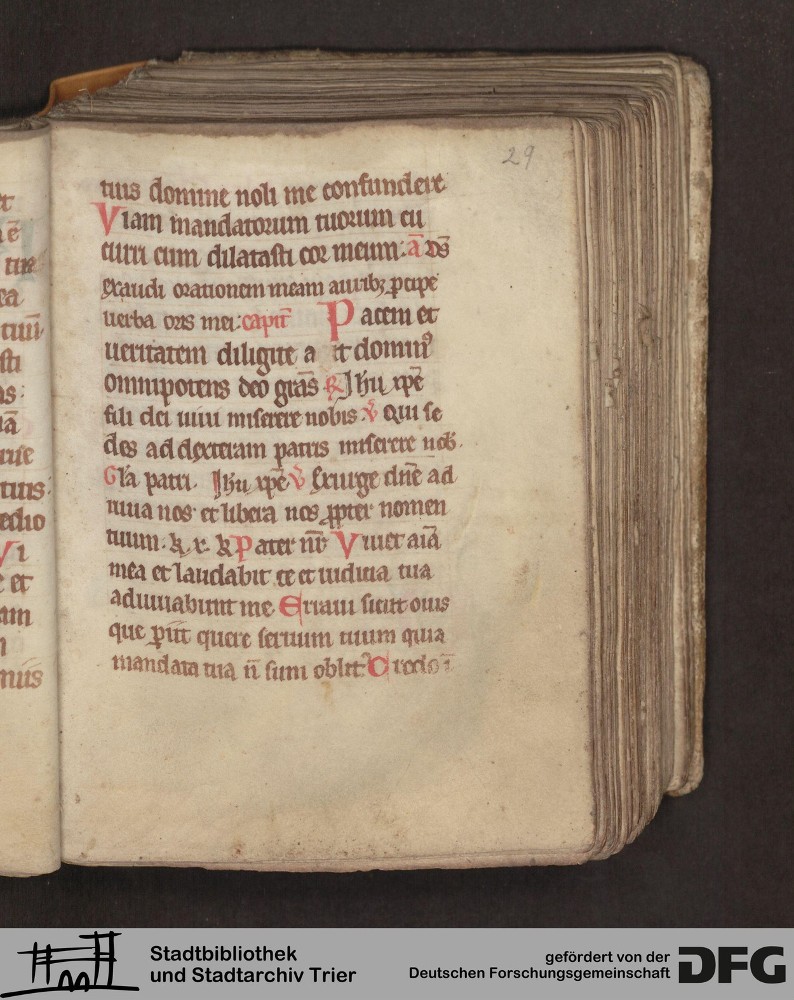 29
tuis domine noli me confundere
Viam mandatorum tuorum cu
curri cum dilatasti cor meum: a ds̄
exaudi orationem meam aurib; ꝑcipe
uerba oris mei: capit̄ Pacem et
ueritatem diligite a it domin⁹
omnipotens deo grās ℟ Ihu xp̄e
fili dei uiui miserere nobis ℣ Qui se
des ad dexteram patris miserere nob̄.
Gl̄a patri. Ihu xp̄e ℣ Exurge dn̄e ad
iuua nos et libera nos ꝓpter nomen
tuum. k. x. k Pater nr̄ Viuet aīa
mea et laudabit te et iudicia tua
adiuuabunt me Erraui sicut ouis
que ꝑiit quere seruum tuum quia
mandata tua n̄ sum oblit⁹ Credo ī
Stadtbibliothek
und Stadtarchiv Trier
gefördert von der
Deutschen Forschungsgemeinschaft
DFG